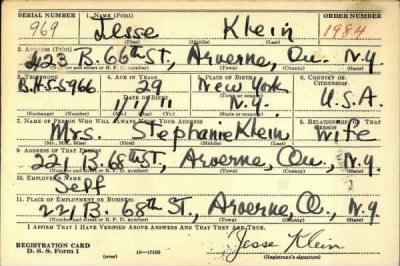 SERIAL NUMBER 1. NAME (Print) ORDER NUMBER
969 Jesse Klein 1984
(First) (Middle) (Last)
2. ADDRESS (Print)
423 B. 66th ST., Arverne, Qu. N.Y.
(Number and street or R. F. D. number) (Town) (County) (State)
3. TELEPHONE 4. AGE IN YEARS 5. PLACE OF BIRTH 6. COUNTRY OF CITIZENSHIP
B.H-5-5966 29 New York
DATE OF BIRTH (Town or county)
1/1/11 N.Y. U.S.A.
(Exchange) (Number) (Mo.) (Day) (Yr.) (State or country)
7. NAME OF PERSON WHO WILL ALWAYS KNOW YOUR ADDRESS 8. RELATIONSHIP OF THAT PERSON
Mrs. Stephanie Klein Wife
(Mr., Mrs., Miss) (First) (Middle) (Last)
9. ADDRESS OF THAT PERSON
221 B. 68th ST., Arverne, Qu., N.Y.
(Number and street or R. F. D. number) (Town) (County) (State)
10. EMPLOYER'S NAME
Self
11. PLACE OF EMPLOYMENT OR BUSINESS
221 B. 68th ST., Arverne, Q., N.Y.
(Number and street or R. F. D. number) (Town) (County) (State)
I AFFIRM THAT I HAVE VERIFIED ABOVE ANSWERS AND THAT THEY ARE TRUE.
REGISTRATION CARD
D. S. S. Form 1 16—17105 Jesse Klein
(Registrant's signature)